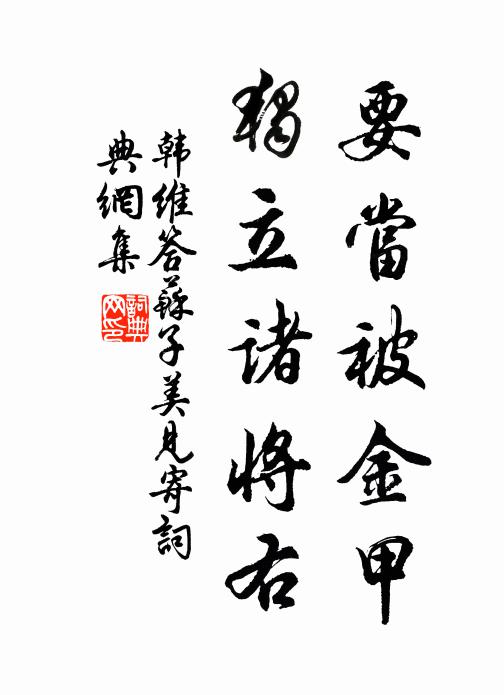 要當被金甲
獨立諸將右
韓維答蘇子美見寄詞
典網集
詞典网印